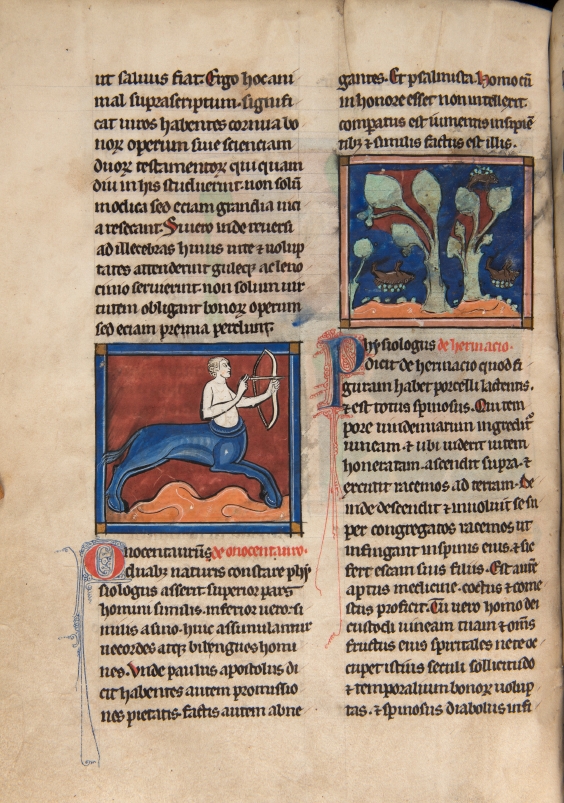 ut saluus fiat. Ergo hoc ani
mal suprascriptum. signifi
cat uiros habentes cornua bo
noꝝ operum siue scienciam
duoꝝ testamentoꝝ qui quam
diu in his studuerint. non solū
modica sed eciam grandia uici
a resecant. Si uero inde reuersi
ad illecebras huius uite ⁊ uolup
tates attenderint guleqꝫ ac leno
cinio seruierint. non solum uir
tutem obligant bonoꝝ operum
sed eciam premia perdunt.
Onocentaurūs de onocentauro.
duabꝫ naturis constare phy
siologus asserit superior pars
homini similis. inferior uero si
milis asino. huic assimulantur
uecordes atqꝫ bilingues homi
nes. Vnde paulus apostolus di
cit habentes autem promissio
nes pietatis. factis autem abne
gantes. Et psalmista. Homo cū
in honore esset non intellexit.
comparatus est iumentis insipiē
tibꝫ ⁊ similis factus est illis.
Physiologus de herinacio.
dicit de herinacio quod fi
guram habet porcelli lactentis.
⁊ est totus spinosus. Qui tem
pore uindemiarum ingreditᷣ
uineam. ⁊ ubi uiderit uitem
honeratam. ascendit supra. ⁊
excutit racemos ad terram. De
inde descendit ⁊ inuoluit se su
per congregatos racemos ut
infingant in spinis eius. ⁊ sic
fert escam suis filiis. Est autē
aptus medicine. coctus ⁊ come
stus proficit. Tu uero homo dei
custodi uineam tuam ⁊ om̄s
fructus eius spiritales nete oc
cupet istius seculi sollicitudo
⁊ temporalium bonoꝝ uolup
tas. ⁊ spinosus diabolus insi